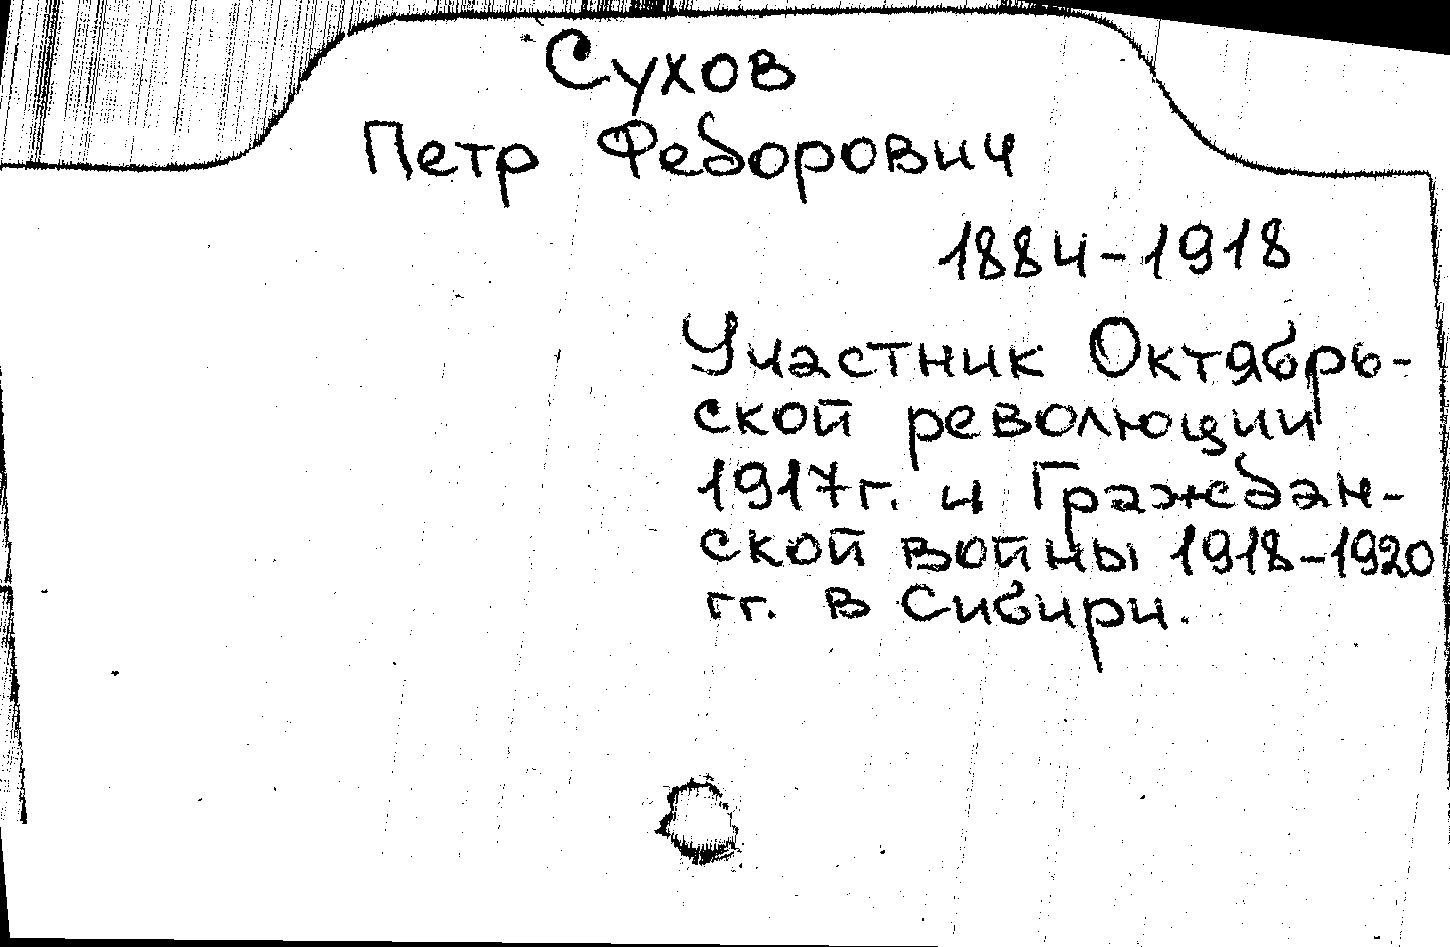 Сухов
Петр Федорович
1884-1918
Участник Октябрь-
ской революции
1917г. и Граждан-
ской войны 1918-1920
гг. в Сибири.